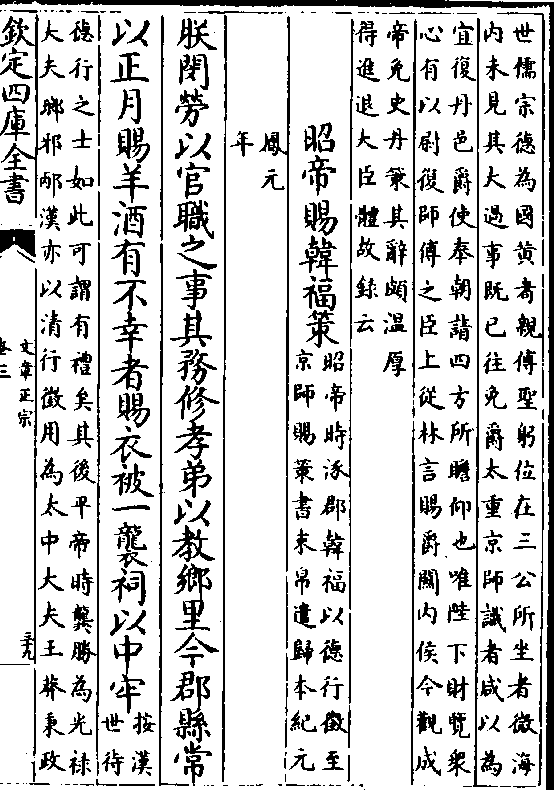 世儒宗德為國黄耇親傅聖躬位在三公所坐者微海
内未見其大過事既已往免爵太重京師識者咸以為
宜復丹邑爵使奉朝請四方所瞻仰也唯陛下財覽衆
心有以尉復師傅之臣上從林言賜爵關内侯今觀成
帝免史丹策其辭頗温厚
得進退大臣體故録云
昭帝賜韓福策
昭帝時涿郡韓福以德行徵至
京師賜策書束帛遣歸本紀元
鳳元
年
朕閔勞以官職之事其務修孝弟以教鄉里令郡縣常
以正月賜羊酒有不幸者賜衣被一襲祠以中牢
按漢
世待
德行之士如此可謂有禮矣其後平帝時龔勝為光禄
大夫瑯邪邴漢亦以清行徵用為太中大夫王莽秉政
欽定四庫全書
文章正宗
卷三
三九